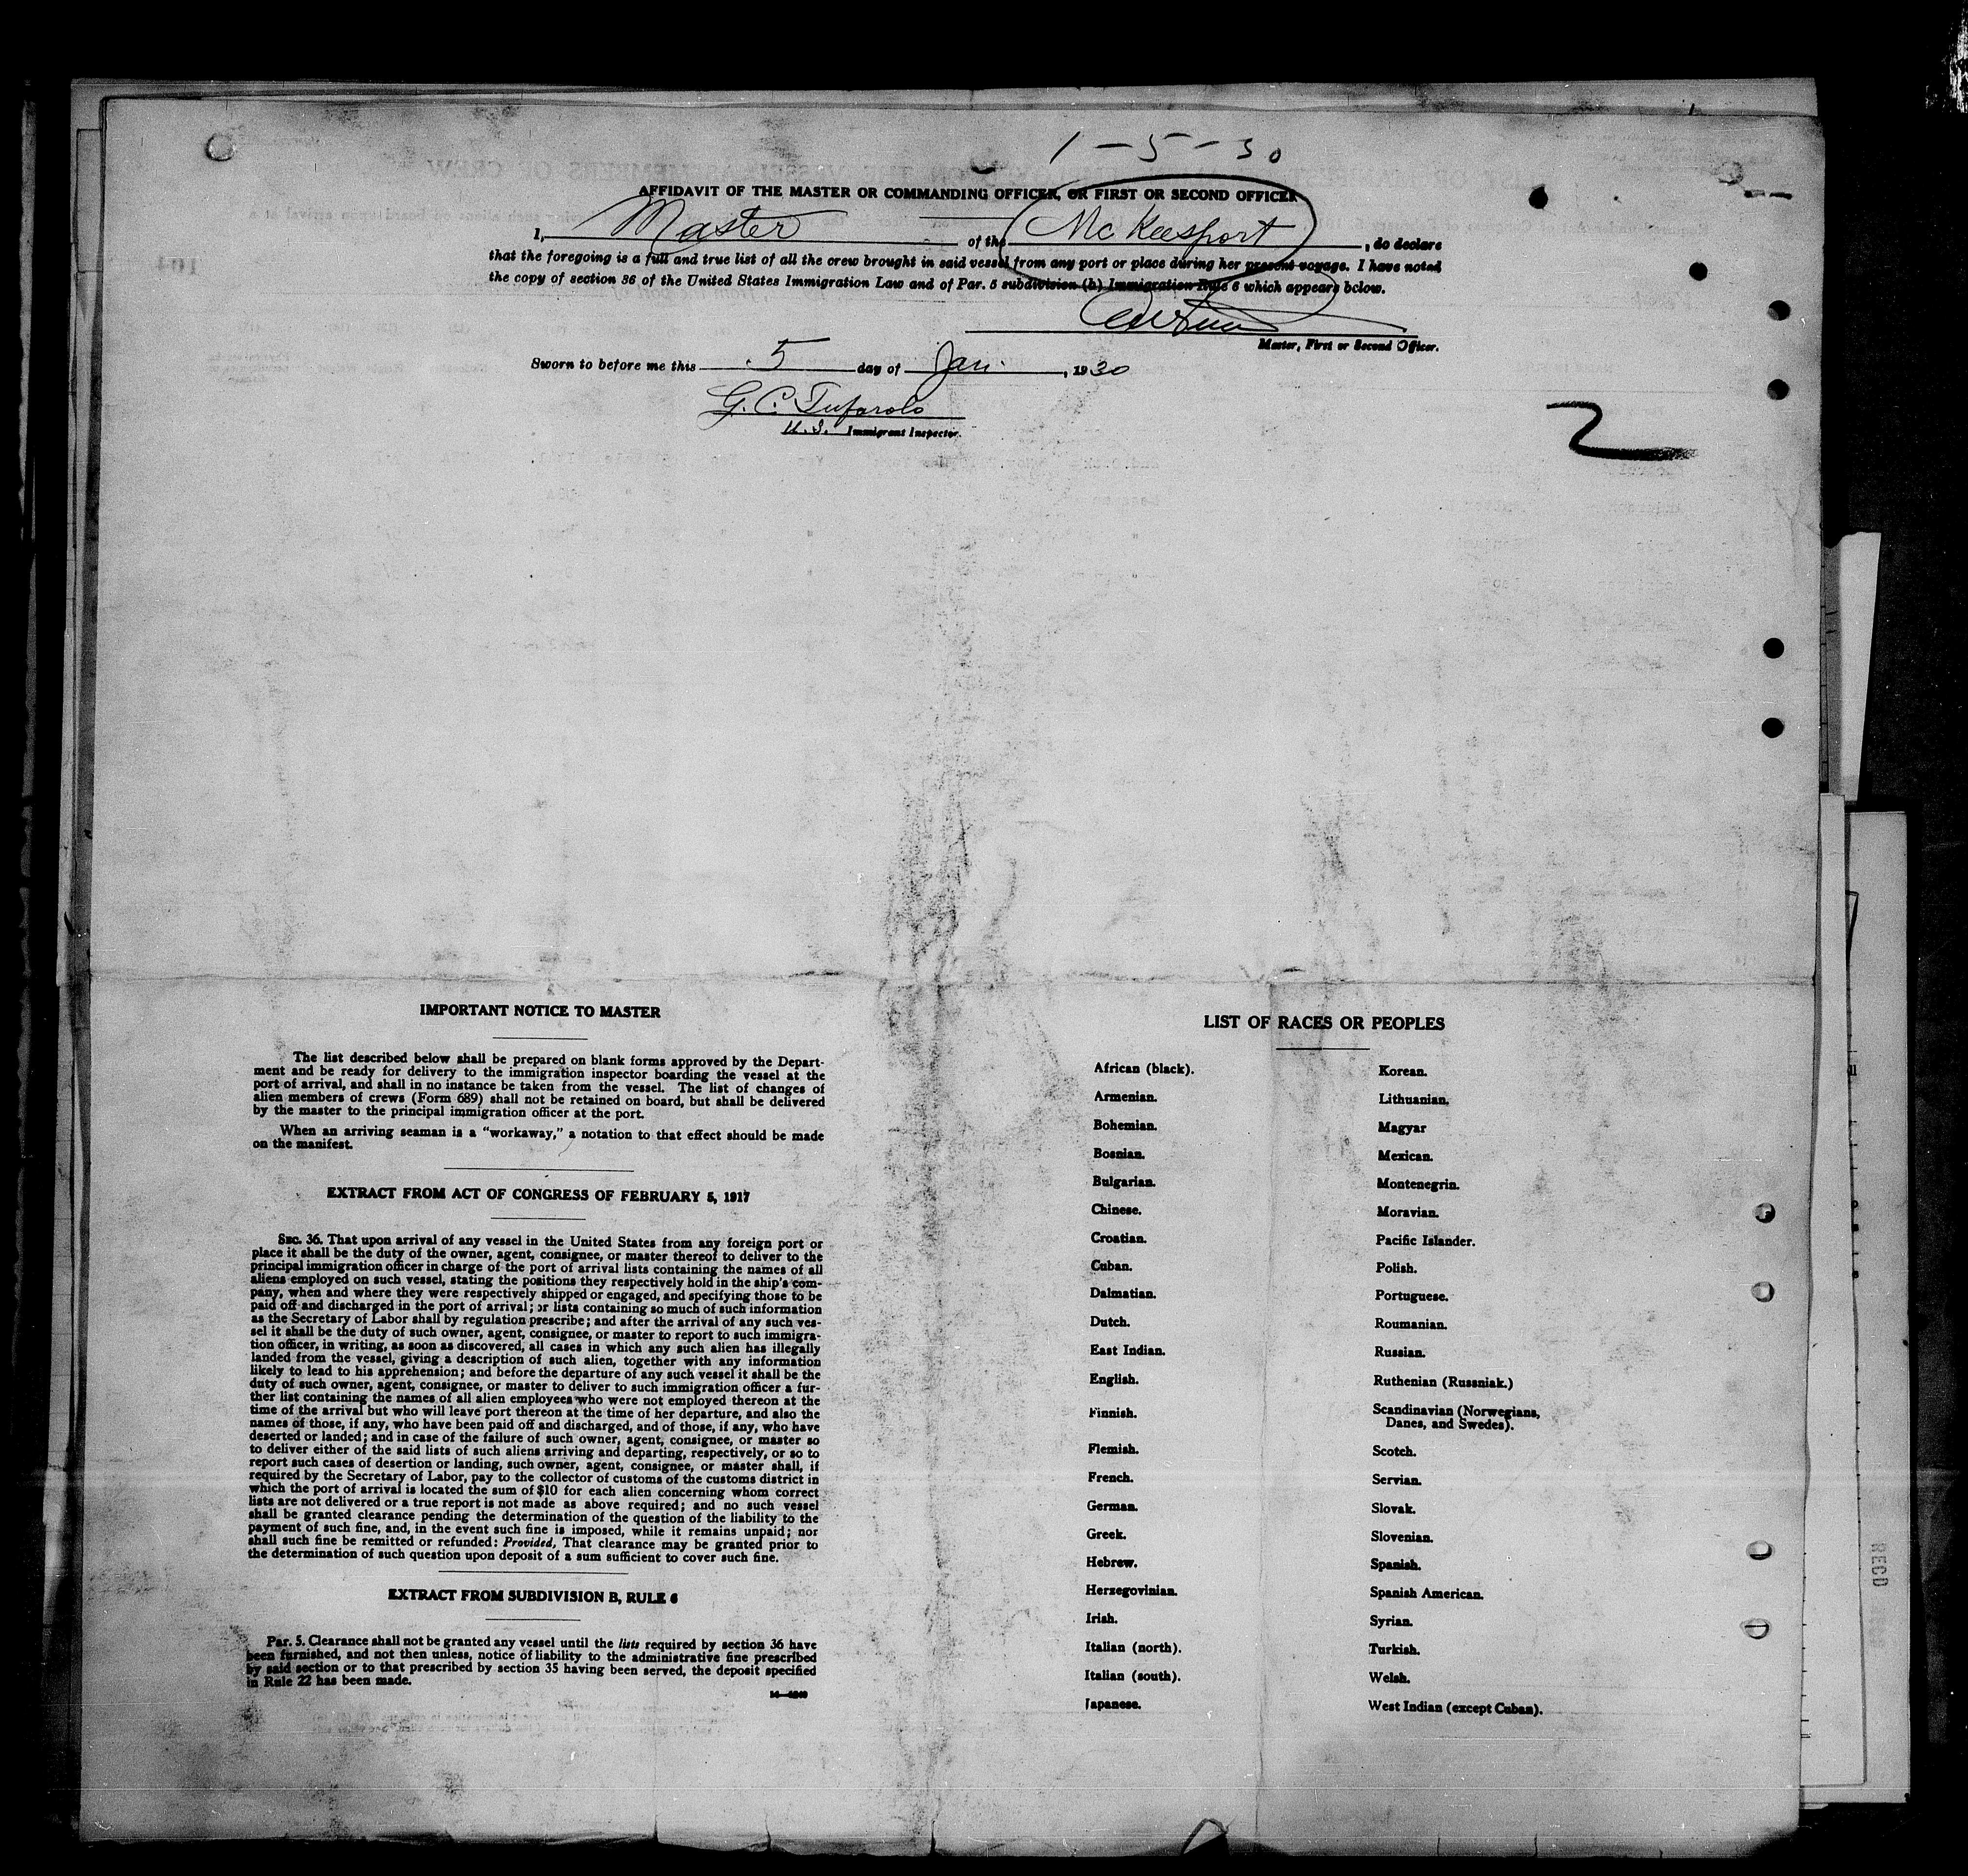 1-5-30
AFFIDAVIT OF THE MASTER OR COMMANDING OFFICER, OR FIRST OR SECOND OFFICER
I, Master of the McKeesport, do declare
that the foregoing is a full and true list of all the crew brought in said vessel from any port or place during her present voyage. I have noted
the copy of section 36 of the United States Immigration Law and of Par. 5 subdivision (b) Immigration Rule 6 which appears below.
Master, First or Second Officer.
Sworn to before me this 5 day of Jan., 1930
G. C. Tufarolo
U. S. Immigrant Inspector.
2
IMPORTANT NOTICE TO MASTER
The list described below shall be prepared on blank forms approved by the Depart-
ment and be ready for delivery to the immigration inspector boarding the vessel at the
port of arrival, and shall in no instance be taken from the vessel. The list of changes of
alien members of crews (Form 689) shall not be retained on board, but shall be delivered
by the master to the principal immigration officer at the port.
When an arriving seaman is a "workaway," a notation to that effect should be made
on the manifest.
EXTRACT FROM ACT OF CONGRESS OF FEBRUARY 5, 1917
SEC. 36. That upon arrival of any vessel in the United States from any foreign port or
place it shall be the duty of the owner, agent, consignee, or master thereof to deliver to the
principal immigration officer in charge of the port of arrival lists containing the names of all
aliens employed on such vessel, stating the positions they respectively hold in the ship's com-
pany, when and where they were respectively shipped or engaged, and specifying those to be
paid off and discharged in the port of arrival; or lists containing so much of such information
as the Secretary of Labor shall by regulation prescribe; and after the arrival of any such ves-
sel it shall be the duty of such owner, agent, consignee, or master to report to such immigra-
tion officer, in writing, as soon as discovered, all cases in which any such alien has illegally
landed from the vessel, giving a description of such alien, together with any information
likely to lead to his apprehension; and before the departure of any such vessel it shall be the
duty of such owner, agent, consignee, or master to deliver to such immigration officer a fur-
ther list containing the names of all alien employees who were not employed thereon at the
time of the arrival but who will leave port thereon at the time of her departure, and also the
names of those, if any, who have been paid off and discharged, and of those, if any, who have
deserted or landed; and in case of the failure of such owner, agent, consignee, or master so
to deliver either of the said lists of such aliens arriving and departing, respectively, or so to
report such cases of desertion or landing, such owner, agent, consignee, or master shall, if
required by the Secretary of Labor, pay to the collector of customs of the customs district in
which the port of arrival is located the sum of $10 for each alien concerning whom correct
lists are not delivered or a true report is not made as above required; and no such vessel
shall be granted clearance pending the determination of the question of the liability to the
payment of such fine, and, in the event such fine is imposed, while it remains unpaid; nor
shall such fine be remitted or refunded: Provided, That clearance may be granted prior to
the determination of such question upon deposit of a sum sufficient to cover such fine.
EXTRACT FROM SUBDIVISION B, RULE 6
Par. 5. Clearance shall not be granted any vessel until the lists required by section 36 have
been furnished, and not then unless, notice of liability to the administrative fine prescribed
by said section or to that prescribed by section 35 having been served, the deposit specified
in Rule 22 has been made.
LIST OF RACES OR PEOPLES
African (black).
Armenian.
Bohemian.
Bosnian.
Bulgarian.
Chinese.
Croatian.
Cuban.
Dalmatian.
Dutch.
East Indian.
English.
Finnish.
Flemish.
French.
German.
Greek.
Hebrew.
Herzegovinian.
Irish.
Italian (north).
Italian (south).
Japanese.
Korean.
Lithuanian.
Magyar
Mexican.
Montenegrin.
Moravian.
Pacific Islander.
Polish.
Portuguese.
Roumanian.
Russian.
Ruthenian (Russniak.)
Scandinavian (Norwegians,
Danes, and Swedes).
Scotch.
Servian.
Slovak.
Slovenian.
Spanish.
Spanish American.
Syrian.
Turkish.
Welsh.
West Indian (except Cuban).
RECD